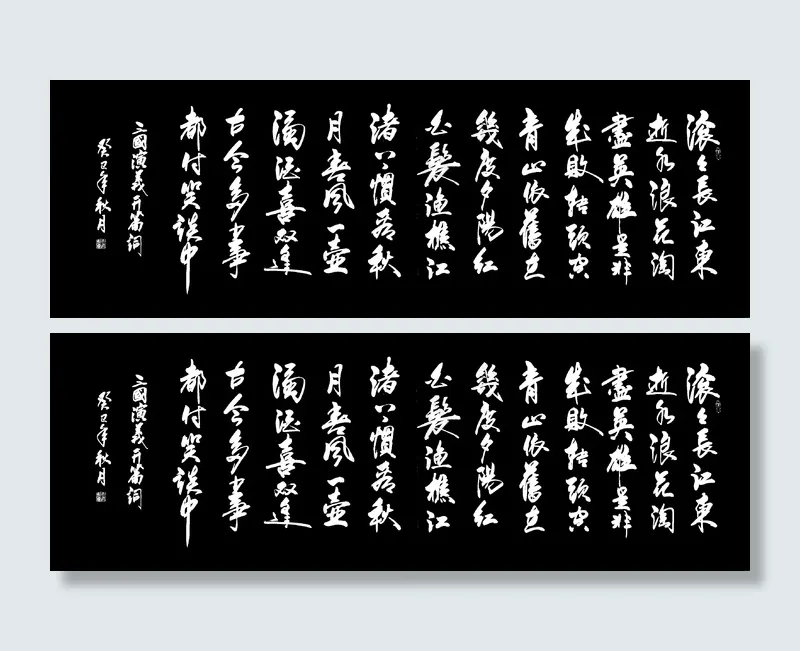 滚々長江東
逝水浪花淘
盡英雄是非
成敗轉頭空
青山依舊在
幾度夕陽紅
白髮渔樵江
渚上慣看秋
月春風一壺
濁酒喜双逢
古今多少事
都付笑談中
三國演義开篇詞
癸巳年秋月
滚々長江東
逝水浪花淘
盡英雄是非
成敗轉頭空
青山依舊在
幾度夕陽紅
白髮渔樵江
渚上慣看秋
月春風一壺
濁酒喜双逢
古今多少事
都付笑談中
三國演義开篇詞
癸巳年秋月